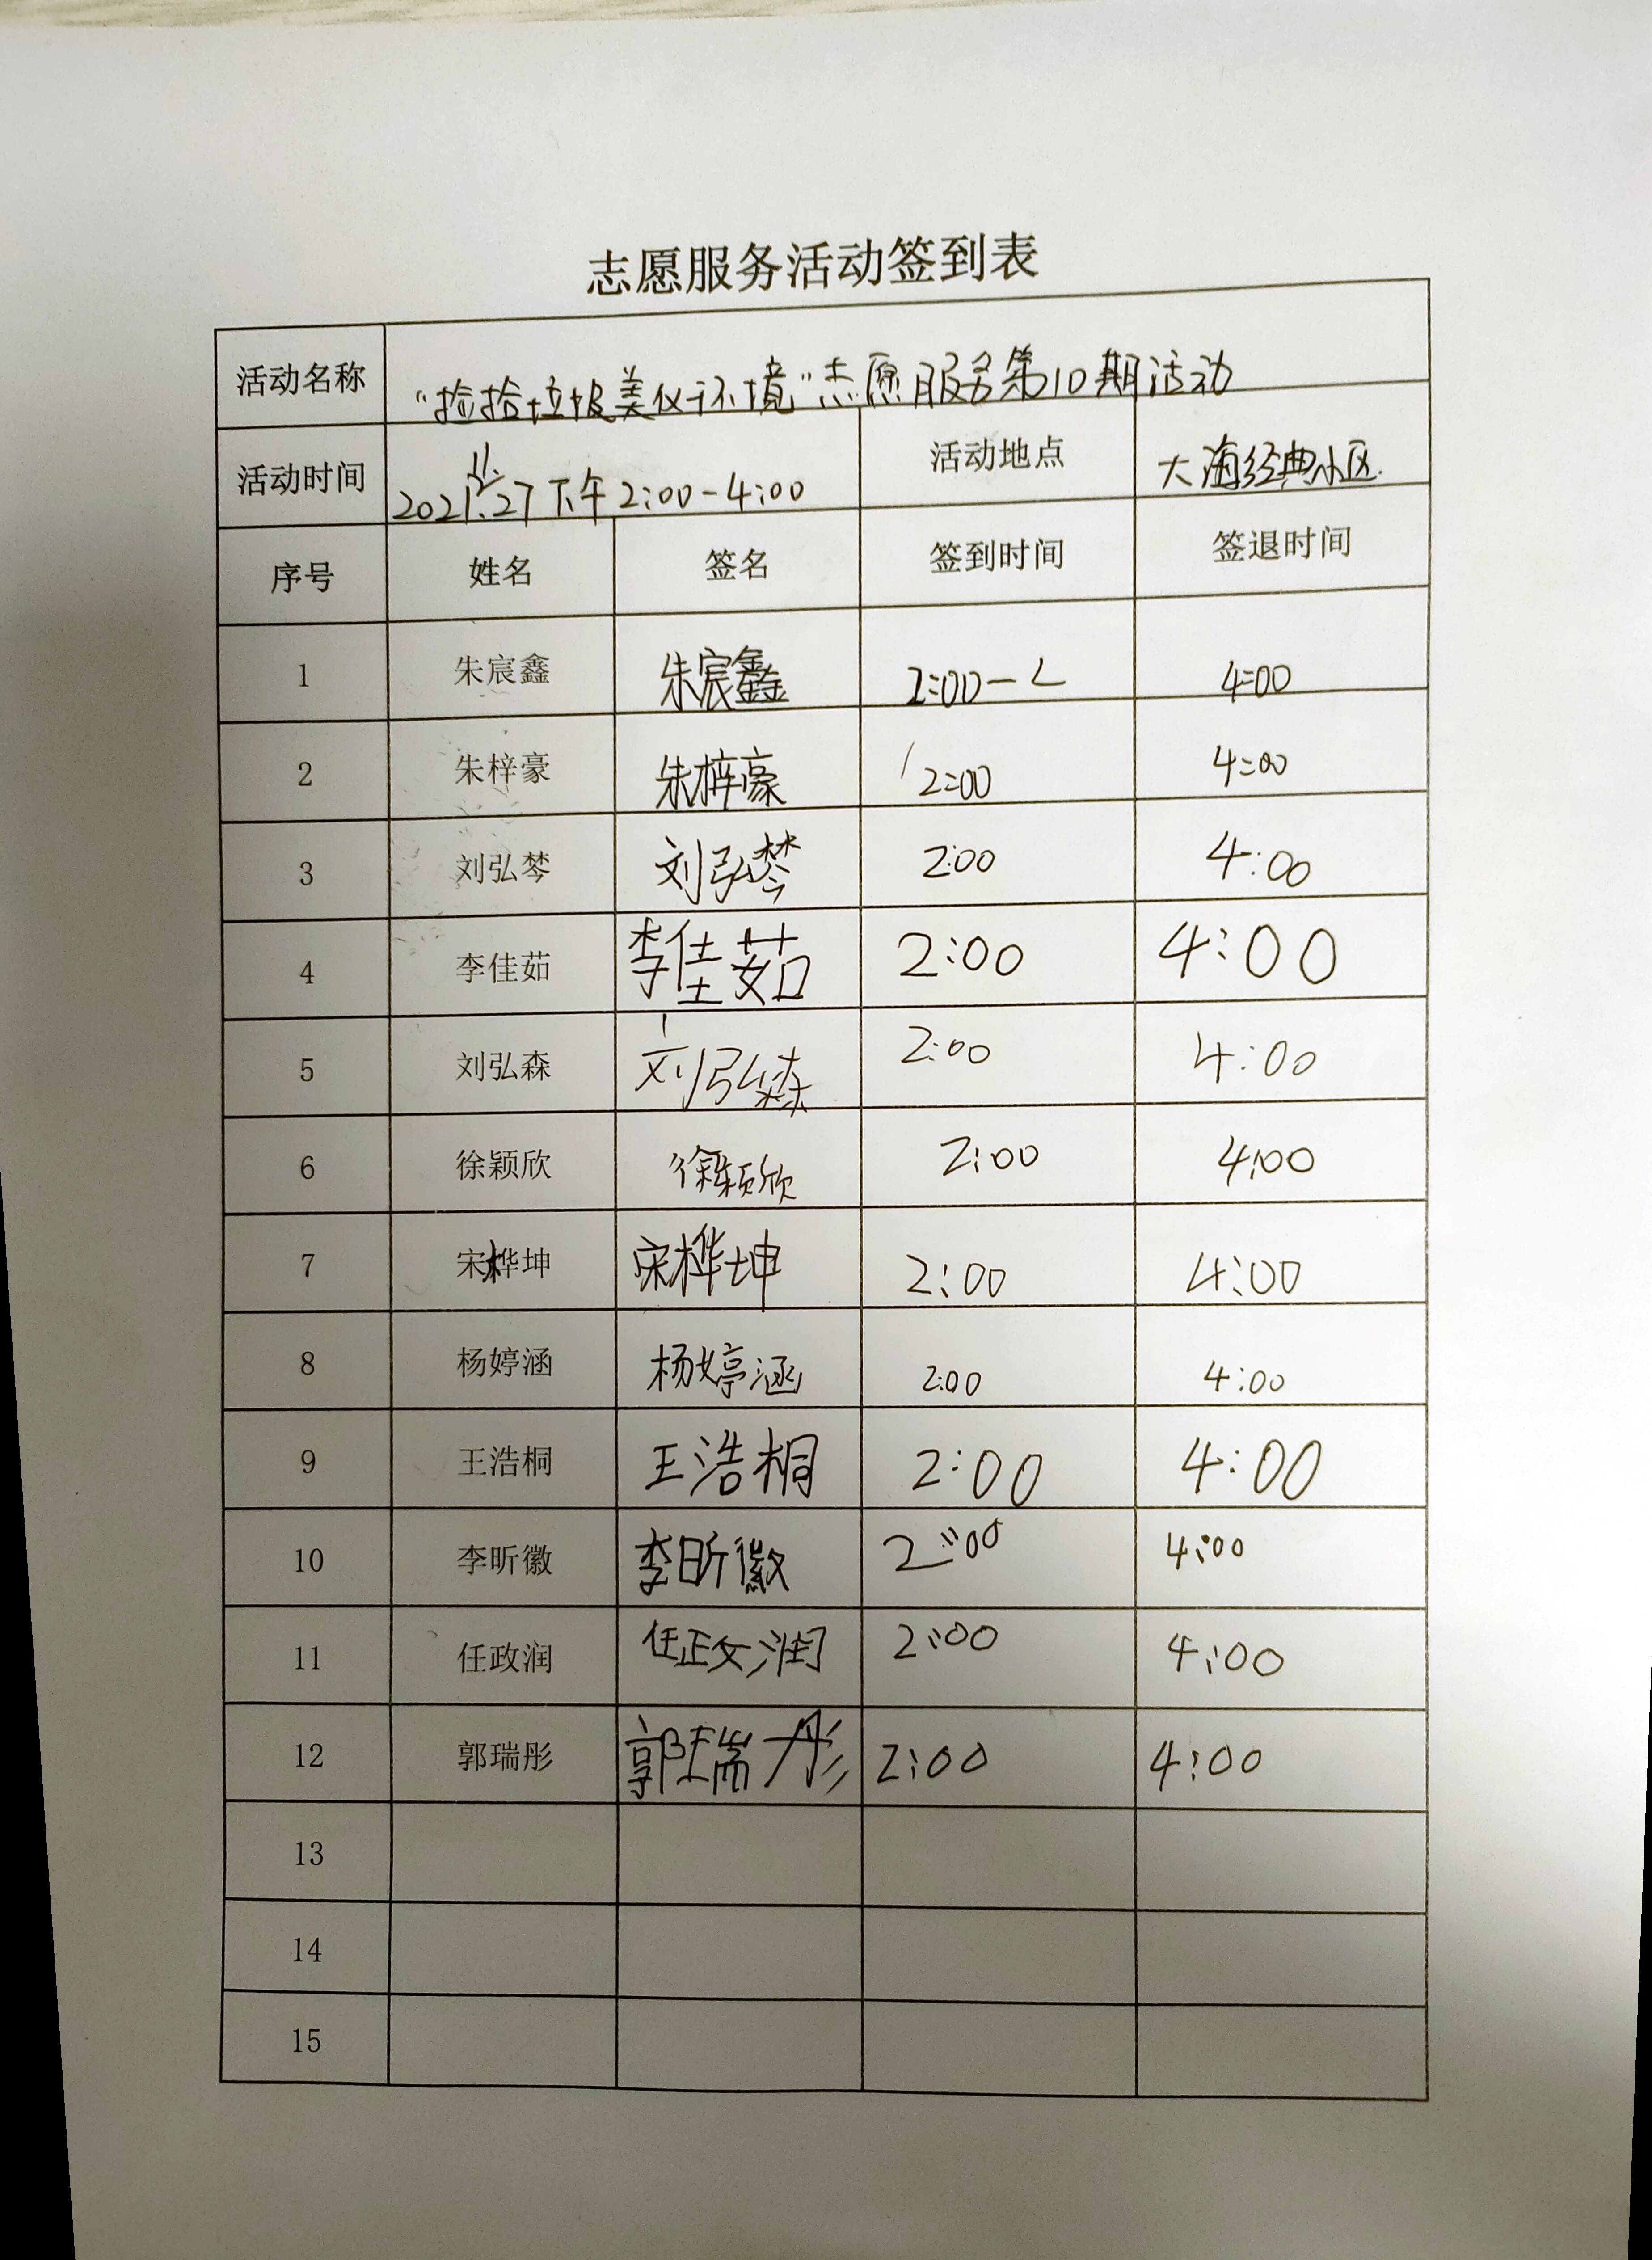 志愿服务活动签到表
活动名称 "捡拾垃圾美化环境"志愿服务第10期活动
活动时间 2021.11.27下午2:00-4:00 活动地点 大海经典小区.
序号 姓名 签名 签到时间 签退时间
1 朱宸鑫 朱宸鑫 2:00 4:00
2 朱梓豪 朱梓豪 2:00 4:00
3 刘弘棽 刘弘棽 2:00 4:00
4 李佳茹 李佳茹 2:00 4:00
5 刘弘森 刘弘森 2:00 4:00
6 徐颖欣 徐颖欣 2:00 4:00
7 宋桦坤 宋桦坤 2:00 4:00
8 杨婷涵 杨婷涵 2:00 4:00
9 王浩桐 王浩桐 2:00 4:00
10 李昕徽 李昕徽 2:00 4:00
11 任政润 任政润 2:00 4:00
12 郭瑞彤 郭瑞彤 2:00 4:00
13
14
15